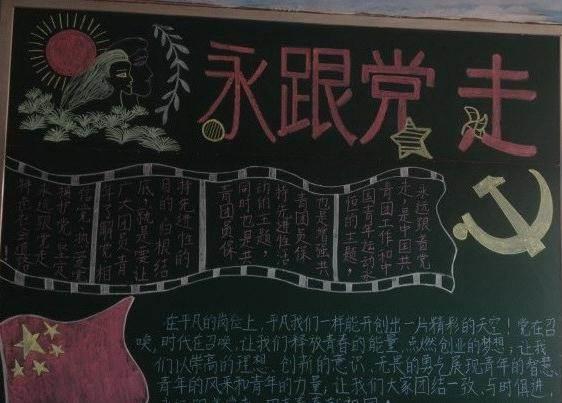 永跟党走
永远跟着党
走,是中国共
青团工作和中
国青年运动永
恒的主题,
也是增强共
青团员保
持先进性活
动的主题,
同时也是共
青团员保
持先进性的
目的,归根结
底,就是要让
广大团员青
年了解党,相
信党、热爱党
拥护党,坚定
永远跟党走,
在平凡的岗位上,平凡我们一样能开创出一片精彩的天空!党在召
唤,时代在召唤,让我们释放青春的能量,点燃创业的梦想;让我
们以崇高的理想、创新的意识、无畏的勇气展现青年的智慧、
青年的风采和青年的力量,让我们大家团结一致、与时俱进,